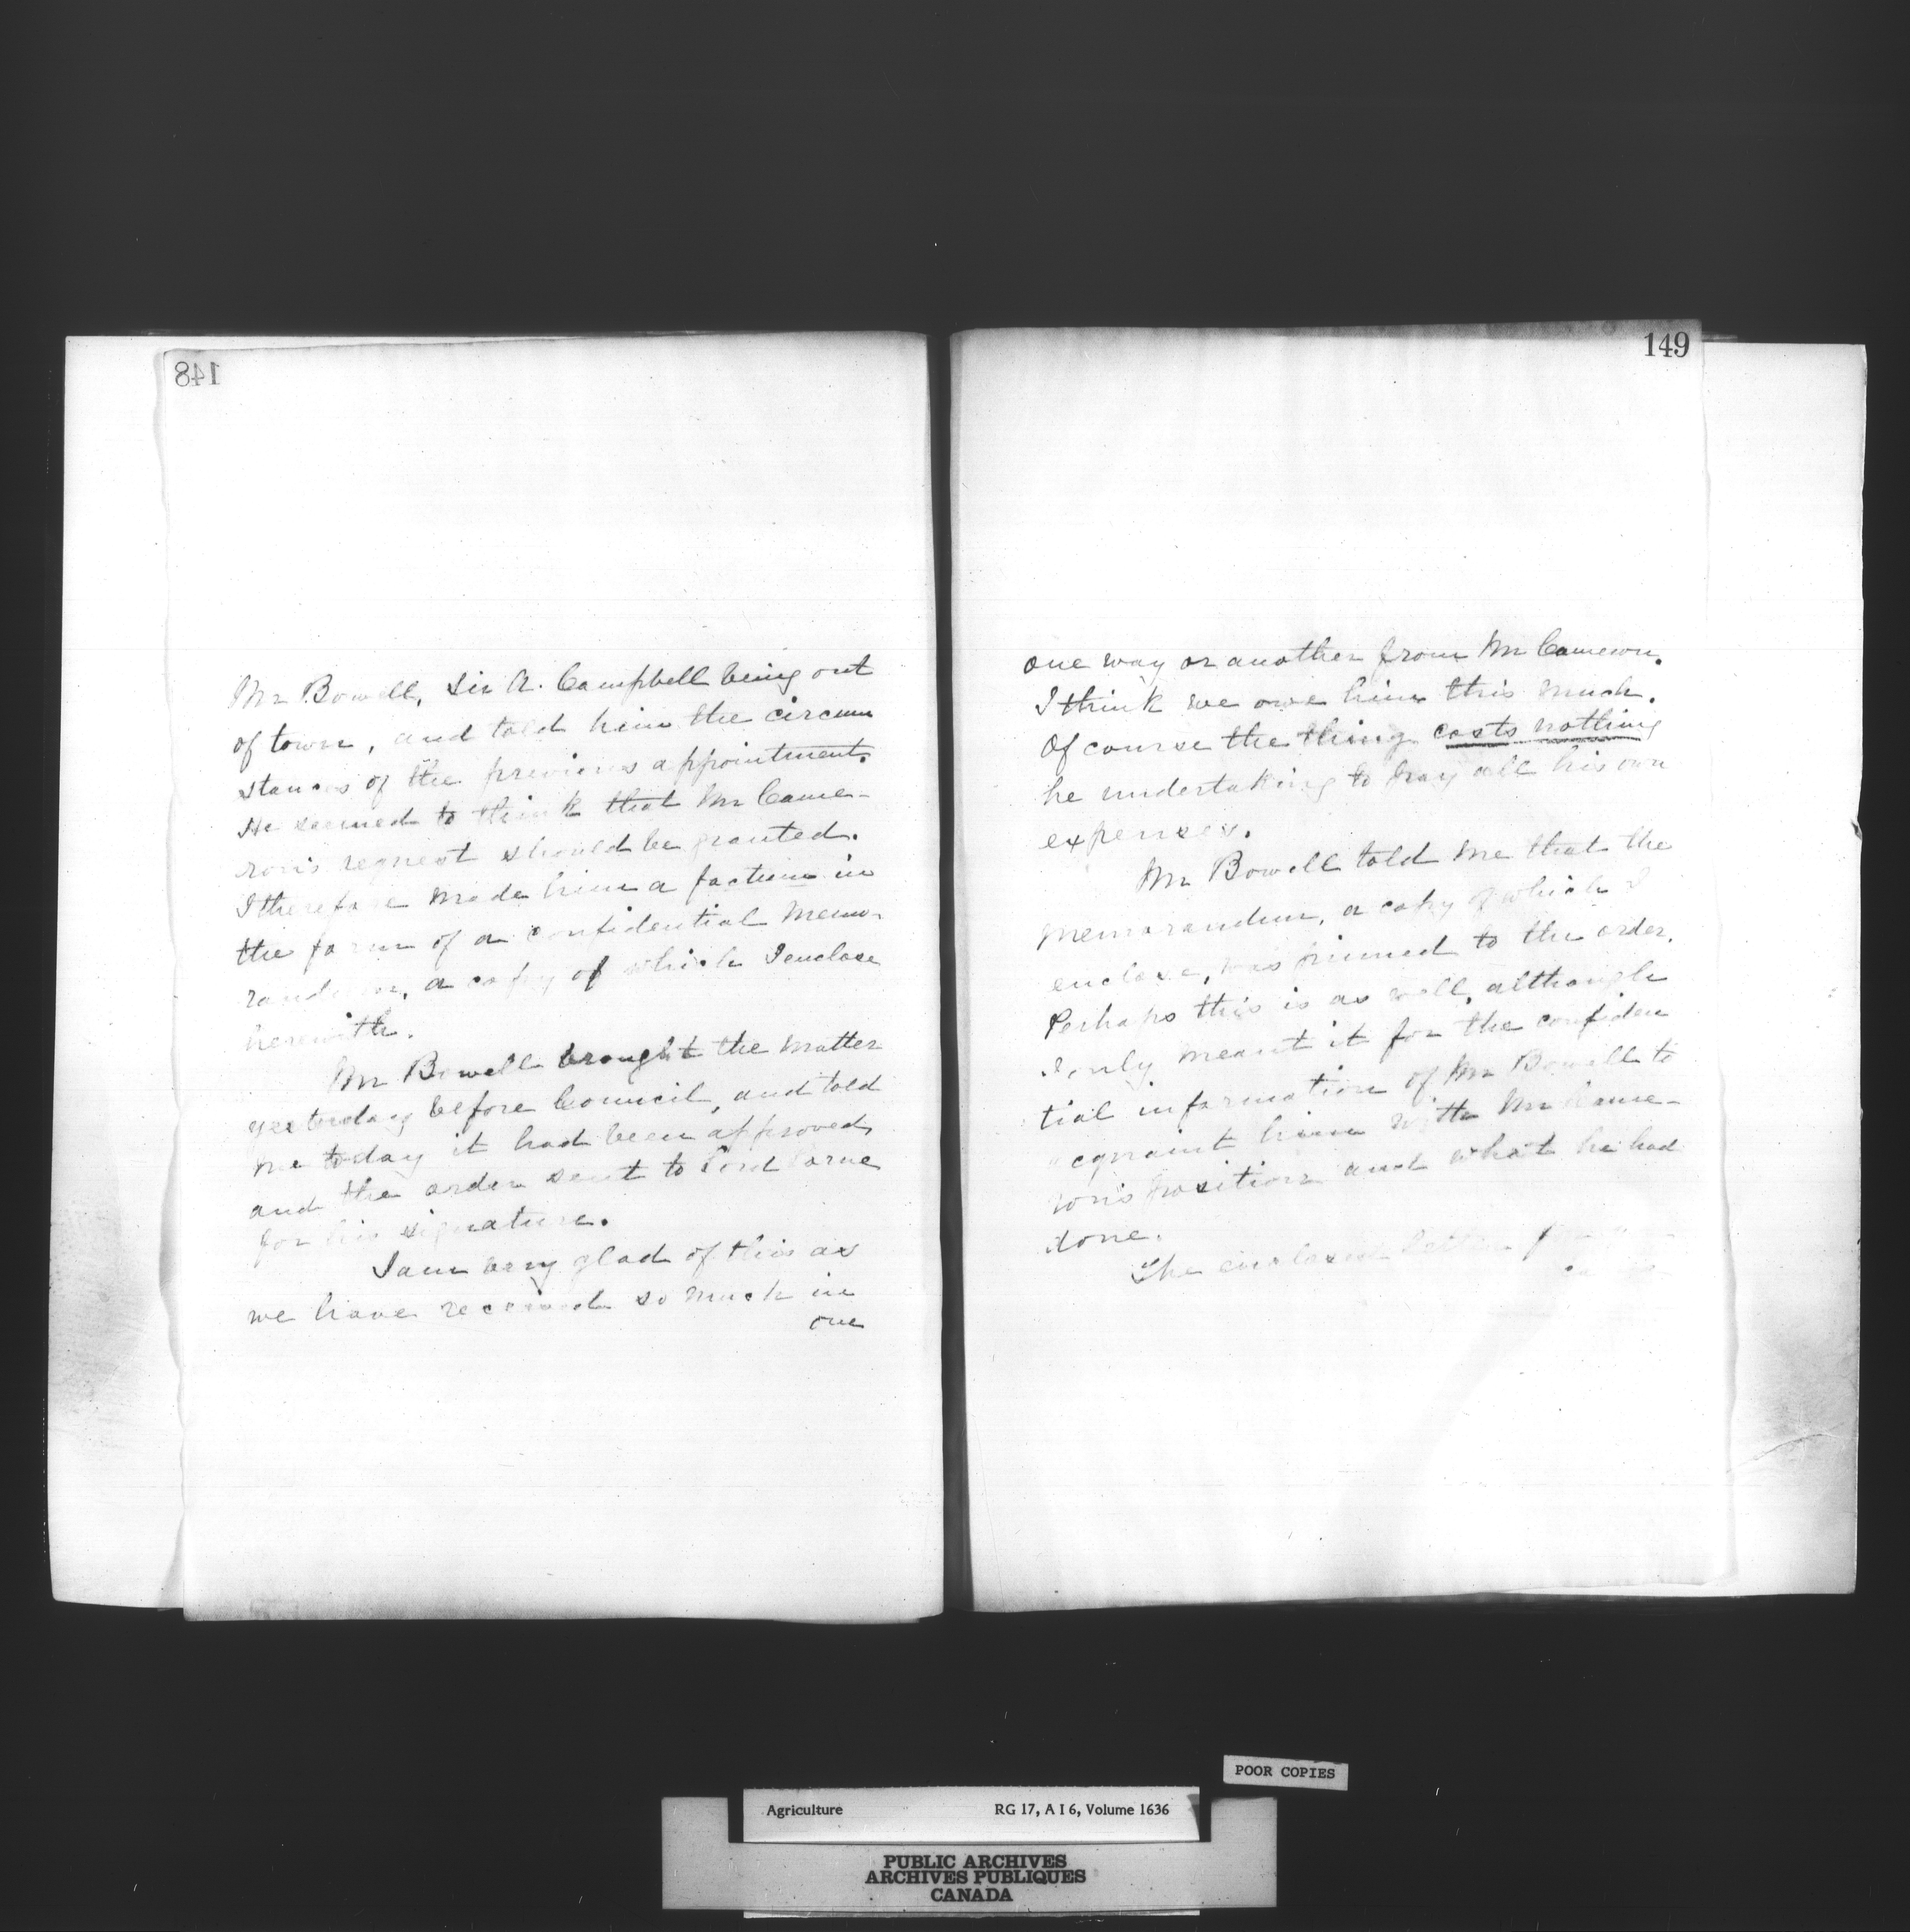 148
Mr Bowell, Sir A. Campbell being out
of town, and told him the circum
stances of the previous appointment.
He seemed to think that Mr Came-
ron's request should be granted.
I therefore made him a factum in
the form of a confidential Memo-
randum, a copy of which I enclose
herewith.
Mr Bowell brought the matter
yesterday before Council, and told
me today it had been approved,
and the order sent to Lord Lorne
for his signature.
I am very glad of this as
we have received so much in
one
149
one way or another from Mr Cameron.
I think we owe him this much.
Of course the thing costs nothing
he undertaking to pay all his own
expenses.
Mr Bowell told me that the
memorandum, a copy of which I
enclose, was pinned to the order.
Perhaps this is as well, although
I only meant it for the confiden
tial information of Mr Bowell to
acquaint him with Mr Came-
ron's position and what he had
done.
The enclosed letter
POOR COPIES
Agriculture RG 17, A I 6, Volume 1636
PUBLIC ARCHIVES
ARCHIVES PUBLIQUES
CANADA